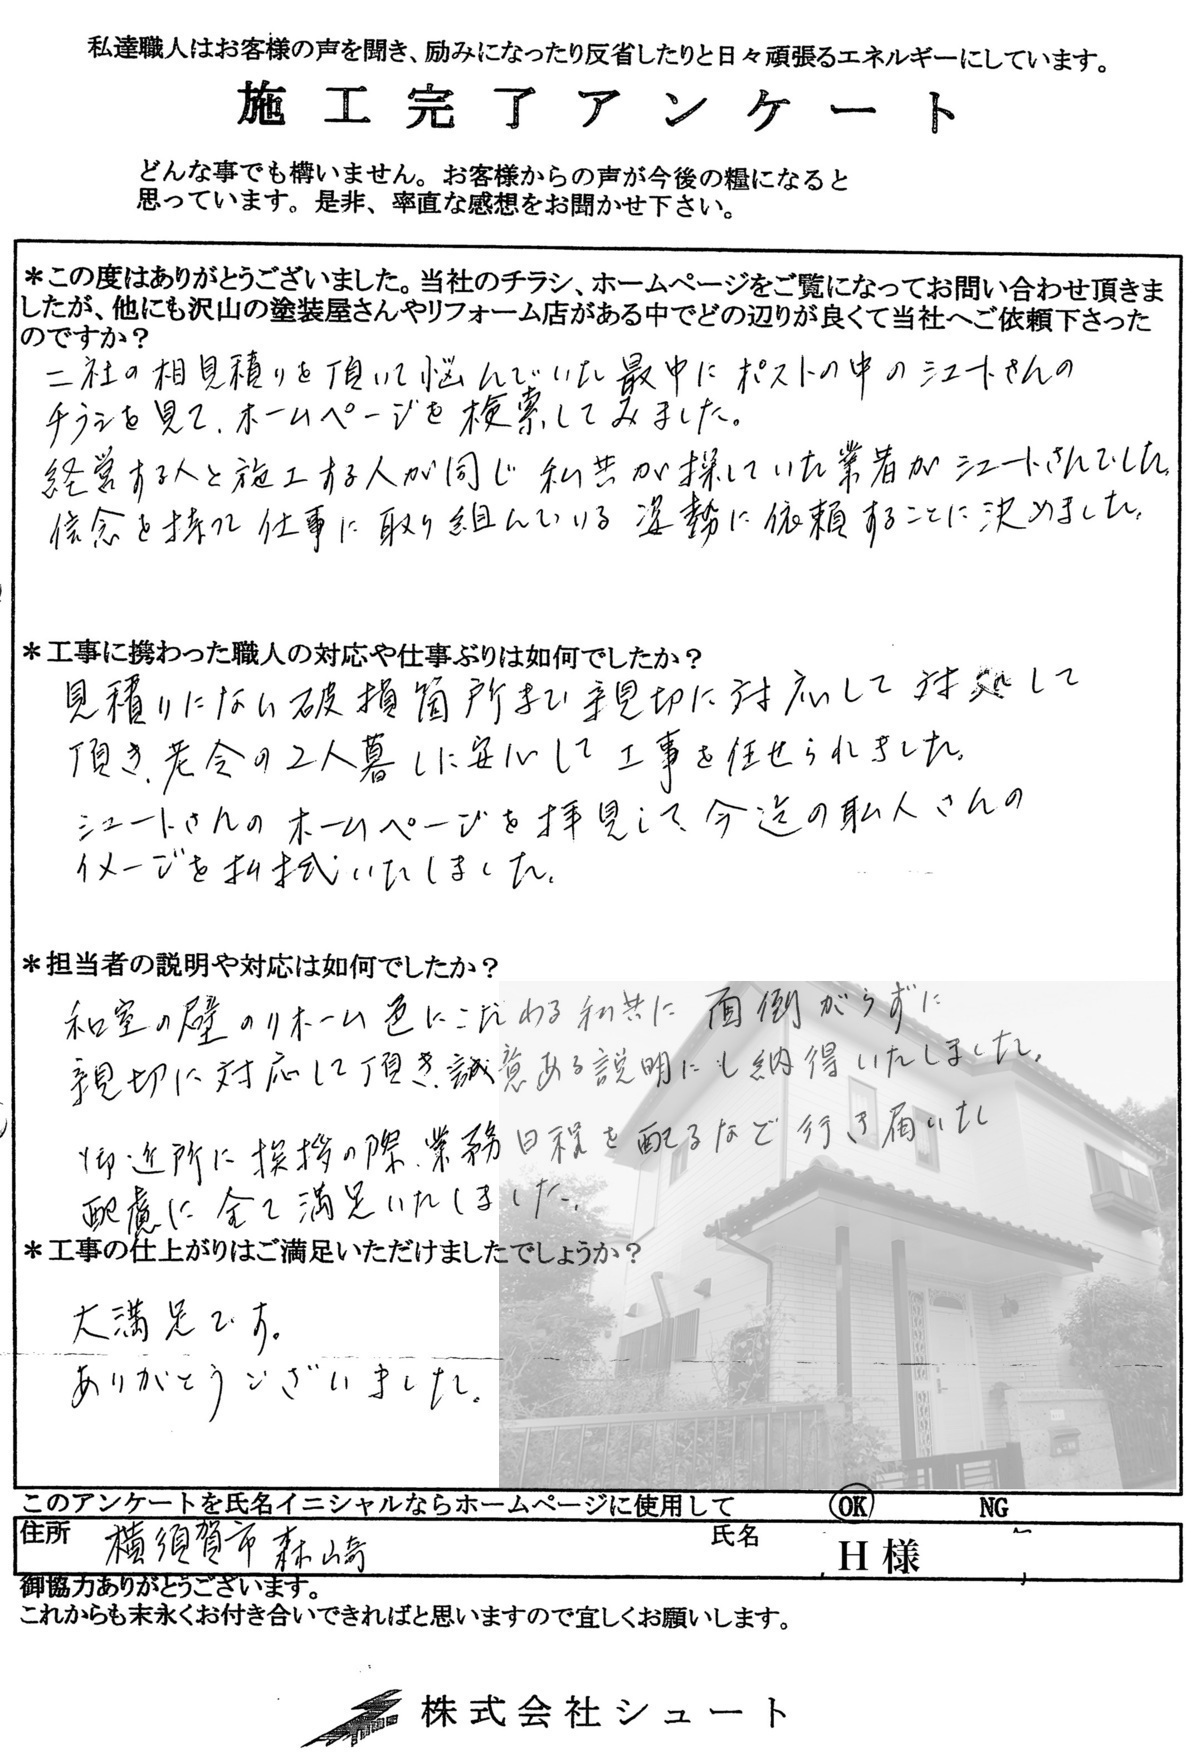 私達職人はお客様の声を聞き、励みになったり反省したりと日々頑張るエネルギーにしています。
施工完了アンケート
どんな事でも構いません。お客様からの声が今後の糧になると
思っています。是非、率直な感想をお聞かせ下さい。
＊この度はありがとうございました。当社のチラシ、ホームページをご覧になってお問い合わせ頂きま
したが、他にも沢山の塗装屋さんやリフォーム店がある中でどの辺りが良くて当社へご依頼下さった
のですか？
二社の相見積りを頂いて悩んでいた最中にポストの中のシュートさんの
チラシを見て、ホームページを検索してみました。
経営する人と施工する人が同じ私共が探していた業者がシュートさんでした。
信念を持って仕事に取り組んでいる姿勢に依頼することに決めました。
＊工事に携わった職人の対応や仕事ぶりは如何でしたか？
見積りにない破損箇所まで親切に対応して対処して
頂き、老令の2人暮しに安心して工事を任せられました。
シュートさんのホームページを拝見して、今迄の職人さんの
イメージを払拭いたしました。
＊担当者の説明や対応は如何でしたか？
和室の壁のリホーム色にこだわる私共に面倒がらずに
親切に対応して頂き、誠意ある説明にも納得いたしました。
御近所に挨拶の際、業務日程を配るなど行き届いた
配慮に全て満足いたしました。
＊工事の仕上がりはご満足いただけましたでしょうか？
大満足です。
ありがとうございました。
このアンケートを氏名イニシャルならホームページに使用して OK NG
住所 横須賀市森崎 氏名 H 様
御協力ありがとうございます。
これからも末永くお付き合いできればと思いますので宜しくお願いします。
株式会社シュート